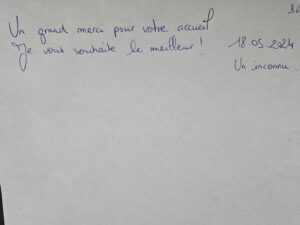 Un grand merci pour votre accueil
Je vous souhaite le meilleur !
18.05.2024
Un inconnu.